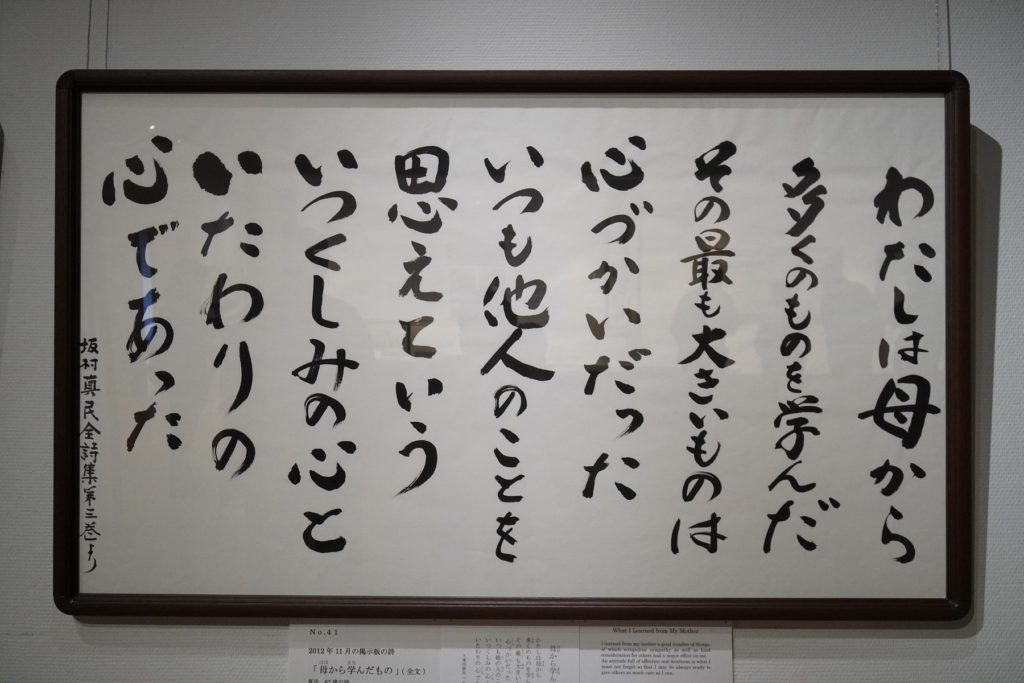 わたしは母から
多くのものを学んだ
その最も大きいものは
心づかいだった
いつも他人のことを
思えという
いつくしみの心と
いたわりの
心であった
坂村真民全詩集第三巻より
No.41
2012年11月の掲示板の詩
「母から学んだもの」(全文)
母から学んだもの
わたしは母から
多くのものを学んだ
What I Learned from My Mother
I learned from my mother a good number of things,
of which scrupulous sympathy as well as kind
consideration for others had a major effect on me.
An attitude full of affection and kindness is what I
must not forget so that I may be always ready to
give others as much care as I can.